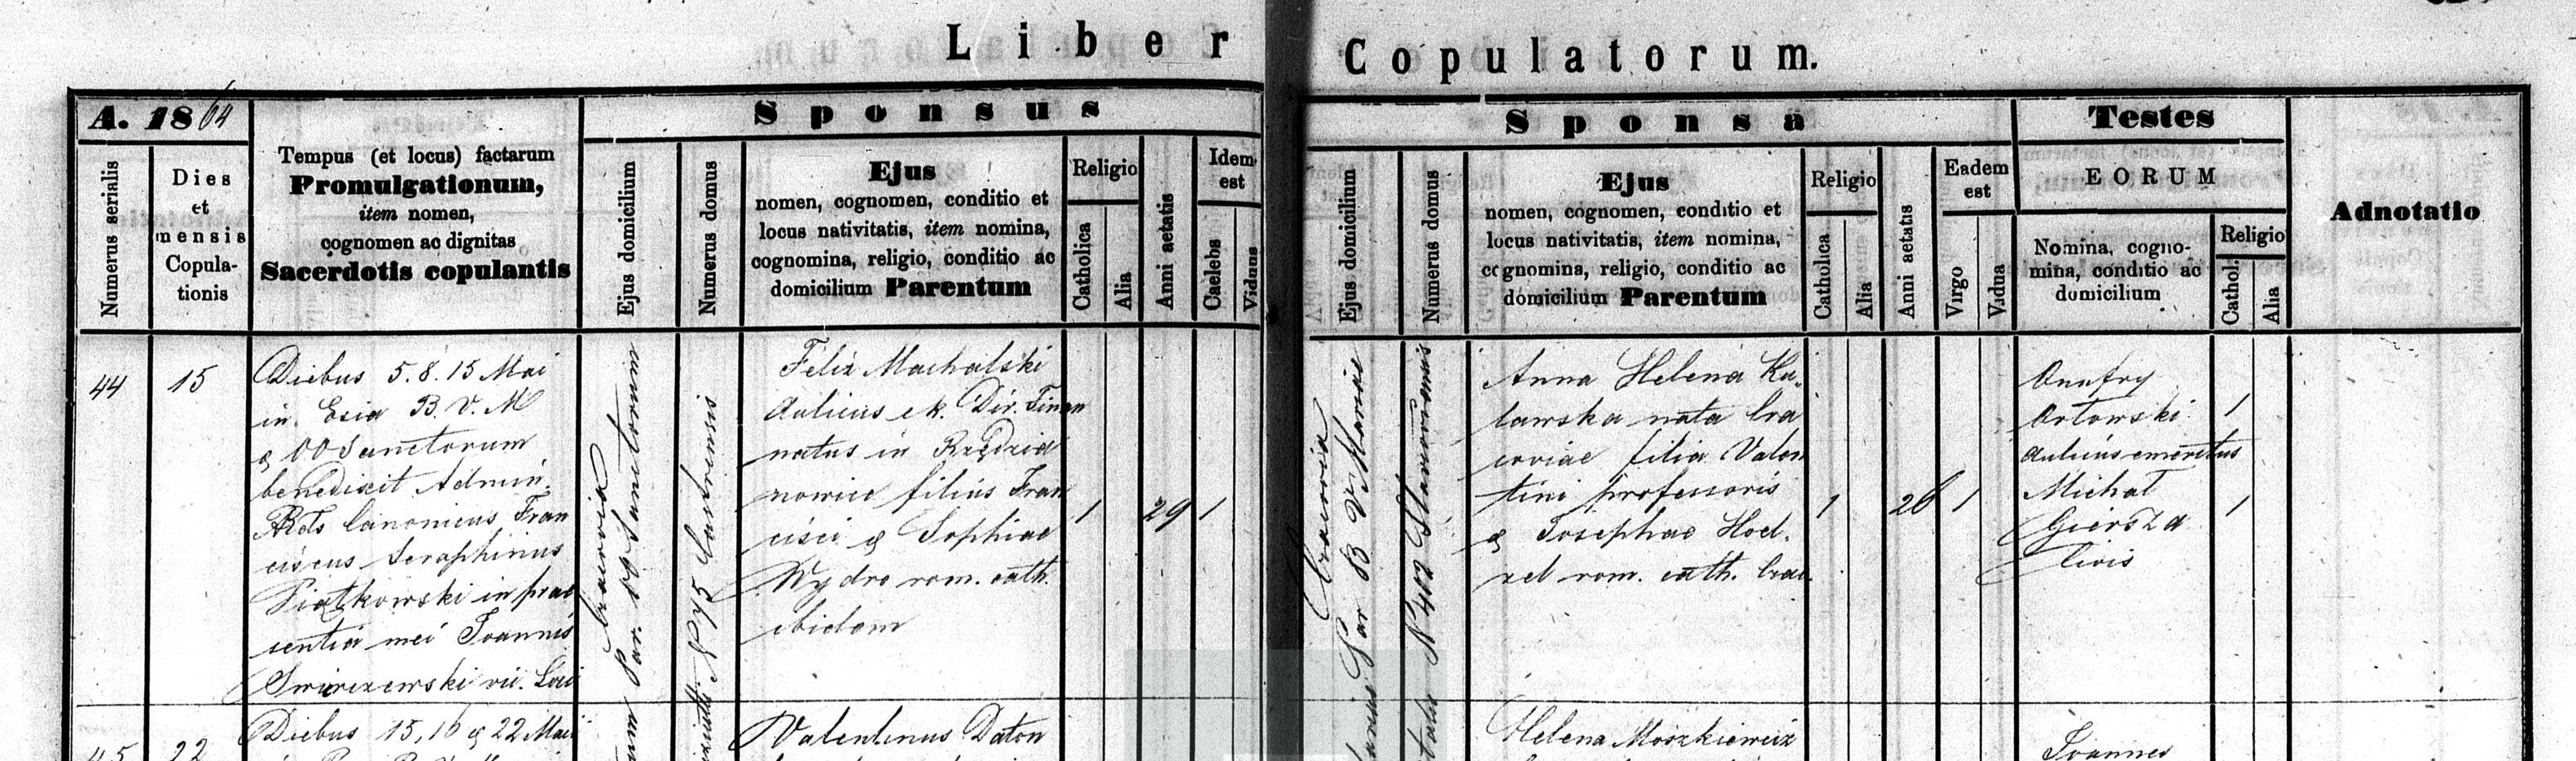 Liber Copulatorum.
A. 1864
Numerus serialis
Dies
et
mensis
Copula-
tionis
Tempus (et locus) factarum
Promulgationum,
item nomen,
cognomen ac dignitas
Sacerdotis copulantis
Sponsus
Ejus domicilium
Numerus domus
Ejus
nomen, cognomen, conditio et
locus nativitatis, item nomina,
cognomina, religio, conditio ac
domicilium Parentum
Religio
Catholica
Alia
Anni aetatis
Idem
est
Caelebs
Viduus
Sponsa
Ejus domicilium
Numerus domus
Ejus
nomen, cognomen, conditio et
locus nativitatis, item nomina,
cognomina, religio, conditio ac
domicilium Parentum
Religio
Catholica
Alia
Anni aetatis
Eadem
est
Virgo
Vidua
Testes
EORUM
Nomina, cogno-
mina, conditio ac
domicilium
Religio
Catholi
Alia
Adnotatio
44
15
Diebus 5. 8. 15 Mai
in B. V. M
& OO Sanctorum
benedixit Admin.
Rds Canonicus Fran
ciscus Seraphinus
Piątkowski in prae
sentia mei Joannis
vic. Loci
Cracovia
Par. OO Sanctorum
N 75 Castrensis
Felix Machalski
Aulicus ck. Dir. Finan
natus in Brzezia
nowice filius Fran
cisci & Sophiae
Wydro rom. cath.
ibidem
1
29
1
Cracovia
Par B V Mariae
N 402
Anna Helena Ku-
lawska nata Cra
coviae filia Valen
tini professoris
& Josephae Hoel.
zel rom. cath. Crac.
1
26
1
Onufry
Orłowski
Aulicus emeritus
Michał
Giersza
Civis
1
1
45
22
Diebus 15, 16 & 22 Maii
Valentinus Daton
Helena Moszkiewicz
Joannes